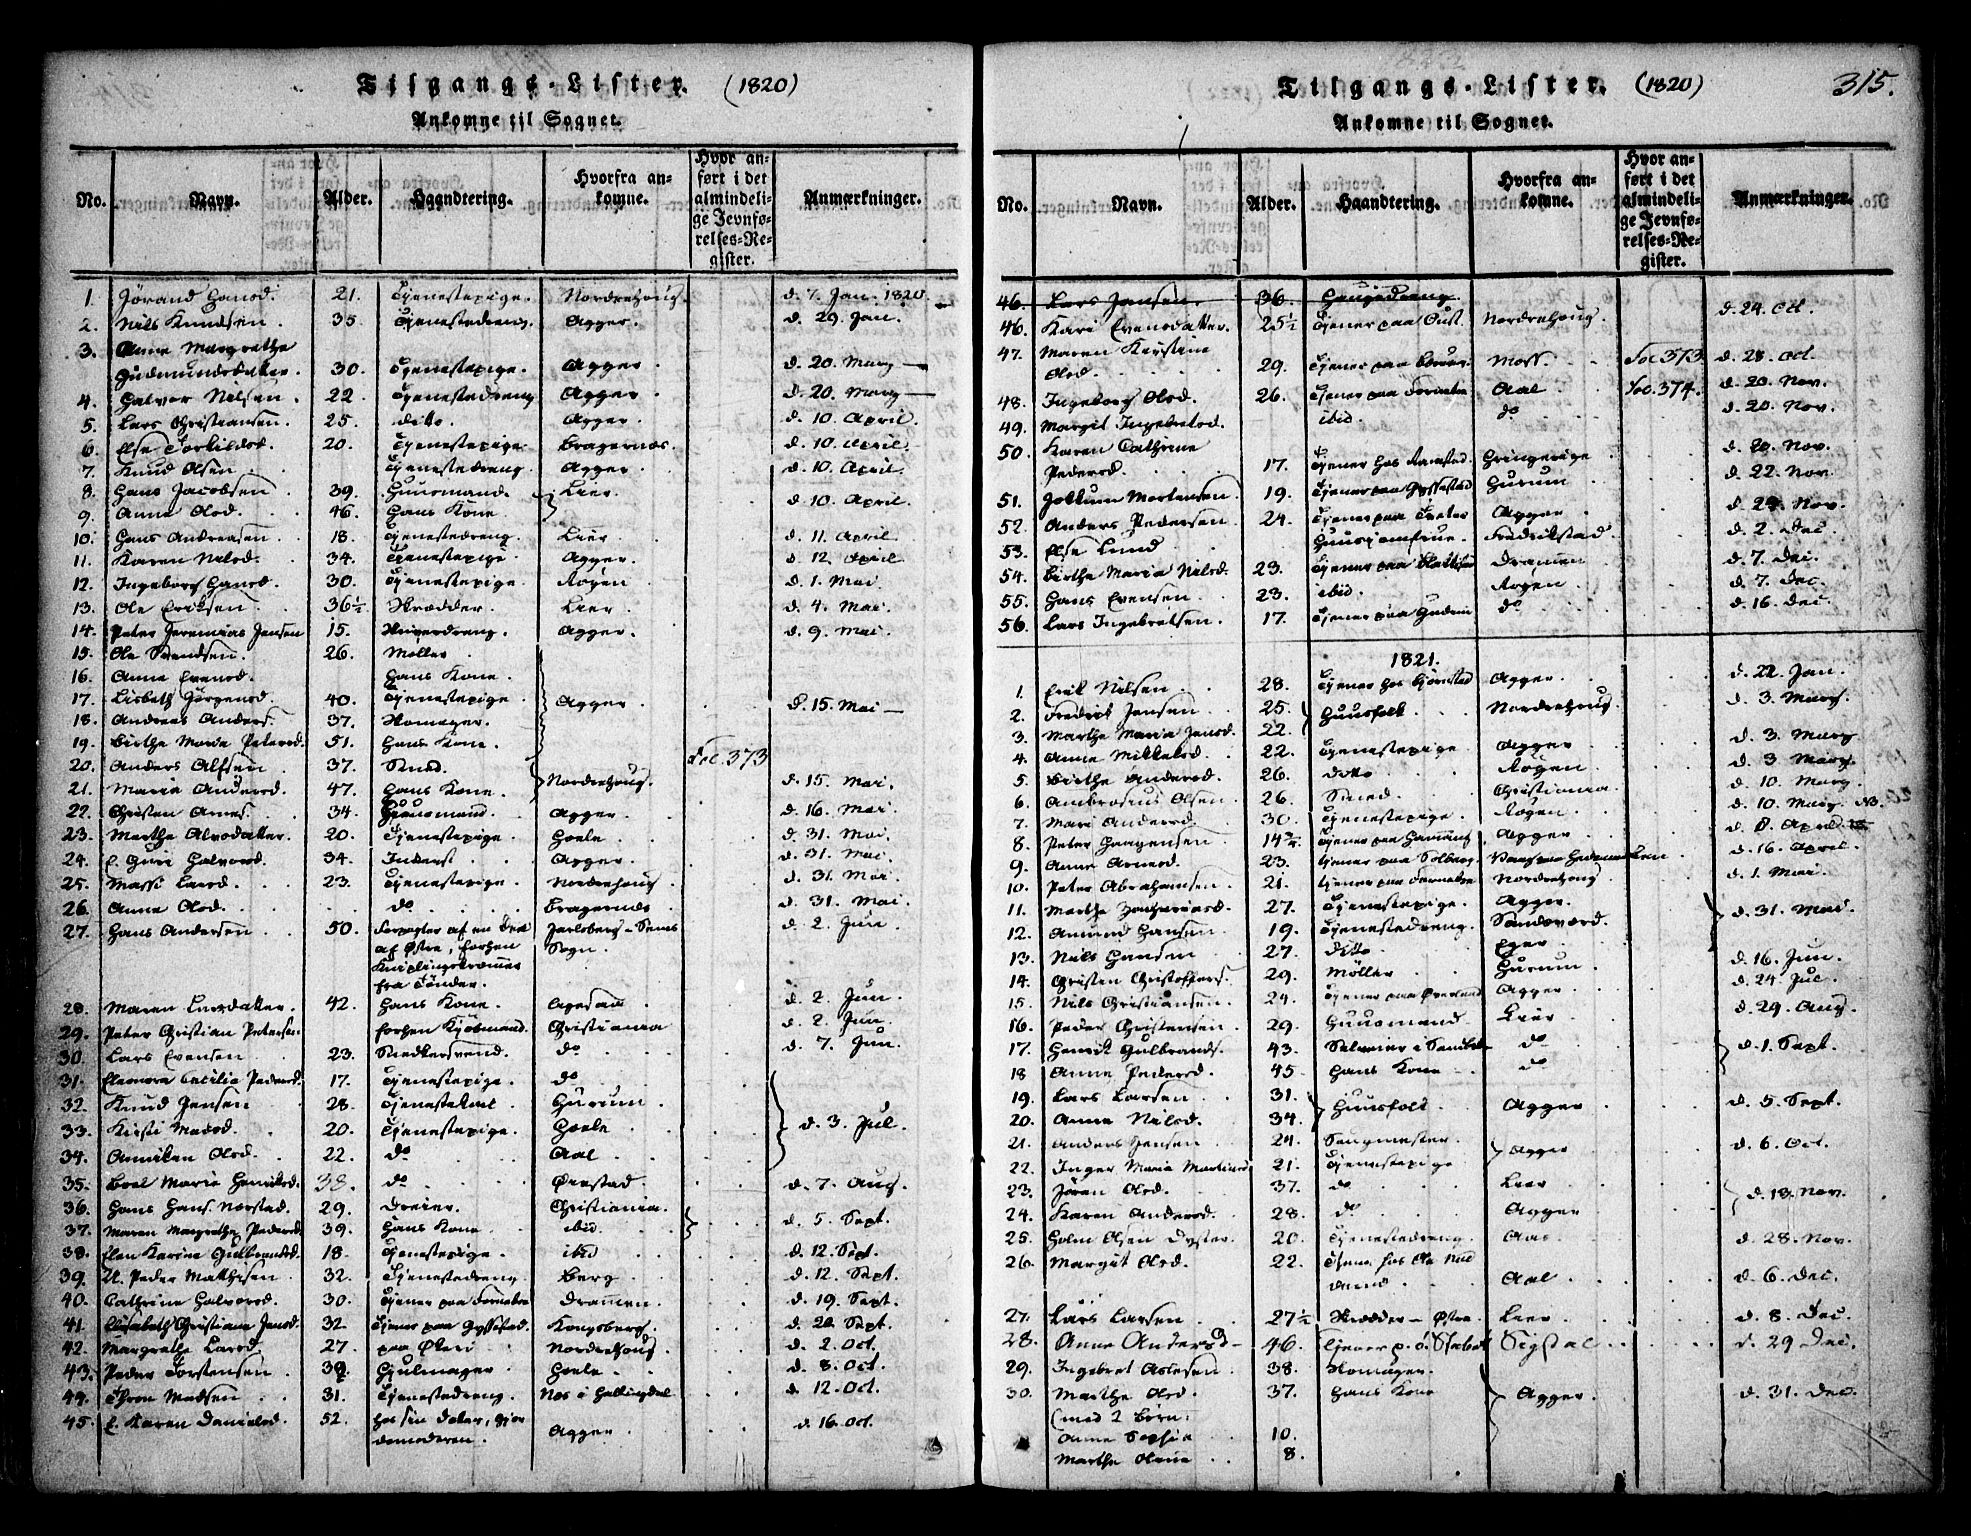 Tilgangs-Lister. (1820)
Ankomne til Sognet.
No. Navn. Alder. Haandtering. Hvorfra ankomne. Hvor anført i det almindelige Jevnførelses-Register. Anmærkninger.
1. Jørand Hansd. 21. Tjenestepige. Nordrehoug. d. 7. Jan. 1820.
2. Nils Knudsen. 35. Tjenestedreng. Agger. d. 29. Jan.
3. Anne Margrethe
Gudmundsdatter. 30. Tjenestepige. Agger. d. 20. Marz
4. Halvor Nilsen. 22. Tjenestedreng Agger. d. 20. Marz
5. Lars Christiansen. 25. ditto. Agger. d. 10. April.
6. Else Torkildsd. 20. Tjenestepige. Bragernæs. d. 10. April.
7. Knud Olsen Tjenestedreng. Agger. d. 10. April.
8. Hans Jacobsen 39. Huusmand. Lier. d. 10. April.
9. Anne Olsd. 46. Hans Kone.
10. Hans Andreasen 18. Tjenestedreng. Lier. d. 11. April
11. Karen Nilsd. 34. Tjenestepige Agger. d. 12. April
12. Ingeborg Hansd. 30. Tjenestepige. Røgen d. 1. Mai
13. Ole Eriksen 36½ Skrædder. Lier. d. 4. Mai.
14. Peter Jeremias Jensen 15. Agger. d. 9. Mai.
15. Ole Svendsen. 26. Møller
16. Anne Evensd. Hans Kone.
17. Lisbeth Jørgensd. 40. Tjenestepige. Agger. d. 15. Mai
18. Andreas Anders. 37. Skomager.
19. Birthe Marie Petersd. 51. Hans Kone.
20. Anders Alfsen 37. Smed. Nordrehoug. Soc. 373 d. 15. Mai.
21. Maria Andersd. 47. Hans Kone.
22. Christen Arnes. 34. Huusmand. Agger. d. 16. Mai.
23. Marthe Alvsdatter. 20. Tjenestepige. Hoele. d. 31. Mai.
24. E. Guri Halvorsd. 34. Inderst Agger. d. 31. Mai.
25. Massi Larsd. 23. Tjenestepige. Nordrehoug d. 31. Mai.
26. Anne Olsd. do. Bragernæs d. 31. Mai.
27. Hans Andersen 50. Forpagter af en Deel Jarlsberg - Sems d. 2. Jun.
af Østre, forhen Sogn.
Kniplingskræmmer
fra Tønder.
28. Maren Larsdatter. 42. Hans Kone. d. 2. Jun.
29. Peter Christian Petersen forhen Kjøbmand. Christiania d. 2. Jun.
30. Lars Evensen 23. Snedkersvend. do d. 7. Jun.
31. Eleonora Cecilia Pedersd. 17. Tjenestepige. do
32. Knud Jensen 28. Tjenestekarl Hurum.
33. Kirsti Madsd. 20. Tjenestepige. Hoele. d. 3. Jul.
34. Anniken Olsd. 22. do Aal
35. Boel Marie Henriksd. 38. do Ørestad. d. 7. Aug.
36. Hans Hans. Norstad. 29. Dreier. Christiania. d. 5. Sept.
37. Maren Margrethe Pedersd. 39. Hans Kone ibid.
38. Elen Karine Gulbrandsd. 18. Tjenestepige. ibid d. 12. Sept.
39. U. Peder Mathisen 32. Tjenestedreng Berg d. 12. Sept.
40. Cathrine Halvorsd. 30. Tjener paa Fornebo Drammen. d. 19. Sept.
41. Elisabeth Christiane Jensd. 32. Tjener paa Gyssestad. Kongsberg. d. 20. Sept.
42. Margrethe Larsd. 27. paa Øveri Nordrehoug d. 2. Oct.
43. Peder Torstensen 39. Hjulmager. Hoele. d. 8. Oct.
44. Thron Madsen 31. Tjenestedreng. Næs i Hallingdal d. 12. Oct.
45. E. Karen Danielsd. 52. hos sin Datter, gjordemoderen. Agger d. 16. Oct.
Tilgangs-Lister. (1820) 315.
Ankomne til Sognet.
No. Navn. Alder. Haandtering. Hvorfra ankomne. Hvor anført i det almindelige Jevnførelses-Register. Anmærkninger.
46. Lars Jansen. 36. Haugedreng
46. Kari Evensdatter. 25½ Tjener paa Oust. Nordrehoug. d. 24. Oct.
47. Maren Kirstine
Olsd. 29. Tjener paa Moss. Soc. 373 d. 28. Oct.
48. Ingeborg Olsd. 26. Tjener paa Fornebo Aal Soc. 374. d. 20. Nov.
49. Margit Ingebretsd. ibid. do d. 20. Nov.
50. Karen Cathrine
Pedersd. 17. Tjener hos Ramstad. Gringerige d. 20. Nov.
51. Mortensen 19. Tjener paa Gyssestad Hurum d. 22. Nov
52. Anders Pedersen 24. Tjener paa Agger d. 29. Nov.
53. Else Lund Huusjomfrue. Fredrikstad. d. 2. Dec.
54. Birthe Maria Nilsd. 23. Tjener paa Drammen d. 7. Dec.
55. Hans Evensen 23. ibid. Røgen d. 7. Dec.
56. Lars Ingebretsen. 17. Tjener paa do d. 16. Dec.
1821.
1. Erik Nilsen 28. Tjener hos Bjørnstad Agger d. 22. Jan.
2. Fredrik Jensen 25. Huusfolk Nordrehoug d. 3. Marz.
3. Marthe Maria Jensd. 22.
4. Anne Mikkelsd. 22. Tjenestepige Agger d. 3. Marz
5. Birthe Andersd. 26. ditto Røgen d. 3. Marz.
6. Ambrosius Olsen 26. Smed. Christiania d. 10. Marz
7. Mari Andersd. 30. Tjenestepige. Røgen d. 10. Marz. NB.
8. Peter Haagensen 14¾ Tjener paa Agger d. 8. April
9. Anne Arnesd. 23. tjener paa Solberg d. 16. April.
10. Peter Abrahamsen 21. tjener paa Fornebo Nordrehoug d. 1. Mai.
11. Marthe Zachariasd. 27. Tjenestepige. Agger. d. 31. Mai.
12. Amund Hansen 19. Tjenestedreng. Sandsværd.
13. Nils Hansen 27. ditto Eger d. 16. Jun.
14. Christen Christoffers. 29. Møller Hurum d. 24. Jul.
15. Nils Christiansen 24. Tjener paa Øverland Agger d. 29. Aug.
16. Peder Christensen 29. Huusmand. Lier
17. Henrik Gulbrands. 43. do d. 1. Sept.
18 Anne Pedersd. 45 Hans Kone do
19. Lars Larsen 31. Huusfolk Agger d. 5. Sept.
20. Anne Nilsd. 34.
21. Anders Jensen 24. Saugmester. Agger d. 6. Oct.
22. Inger Maria Martinsd 21. Tjenestepige
23. Jøren Olsd. 37. do Lier d. 13. Nov.
24. Karen Andersd. 28. do Agger
25. Holm Olsen Dyster. 20. Tjenestedreng. Aas d. 28. Nov.
26. Margit Olsd. 22. Tjener hos Ole Aal d. 6. Dec.
27. Lars Larsen 27½ Skrædder - Østre Lier d. 8. Dec.
28. Anne Andersd 46. Tjener p. ø. Stabek Sigdal d. 29 Dec.
29. Ingebret Aslesen 38. Skomager.
30. Marthe Olsd. 37. Hans Kone Agger d. 31. Dec.
(med 2 Børn:
Anne Sophie 10.
Marthe Oline 8.